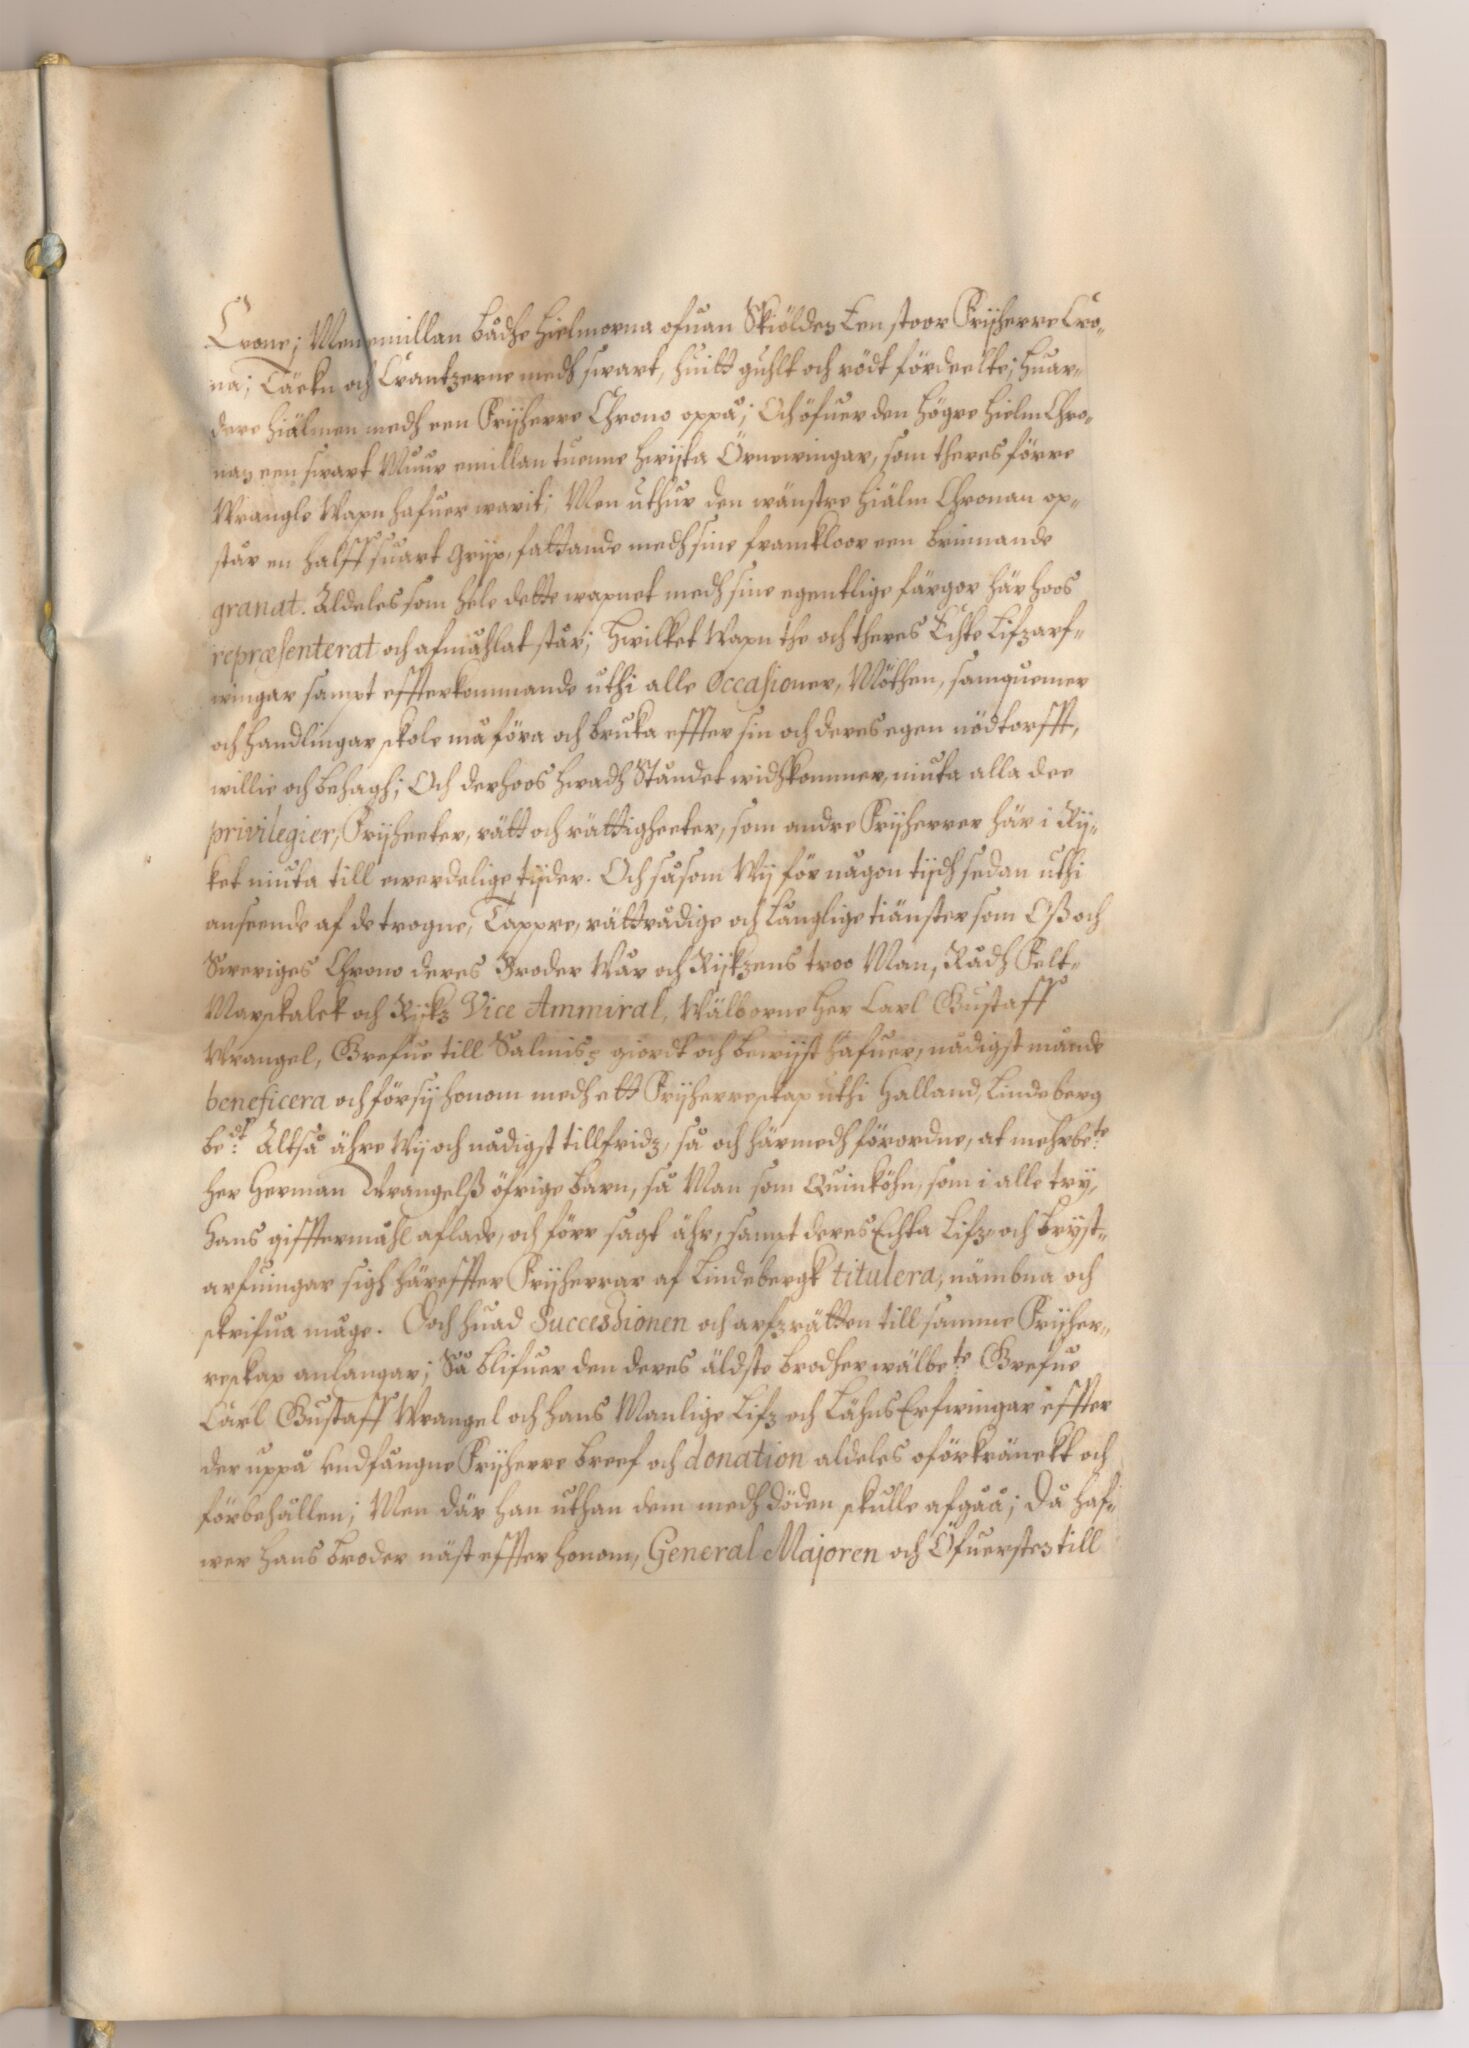 Crone; Men emillan bådhe Hielmorna ofuan Skiölden Een stoor Frijherre Cro-
na; Täckn och Crantzerne medh swart, huitt guhlt och rödt fördeelte; Huar-
dere Hiälmen medh een Frijherre Chrono oppå; Och öfuer den högre Hielm Chro-
nan een swart Muur emillan tuenne hwijta Örnewingar, som theres förre
Wrangle Wapn hafuer warit; Men uthur den wänstre Hiälm Chronan op-
står en halff suart Grijp, fattande medh sine framkloor een brinnande
granat. Aldeles som hele dette wapnet medh sine egentlige färgor här hoos
repræsenterat och afmåhlat står; Hwilket Wapn the och theres Echte Lifzarf-
wingar sampt effterkommande uthi alle Occasioner, Möthen, samquemer
och handlingar skole må föra och bruka effter sin och deres egen nödtorfft,
willie och behagh; Och derhoos hwadh Ståndet widhkommer, niuta alla dee
privilegier, Frijheeter, rätt och rättigheeter, som andre Frijherrer här i Rij-
ket niuta till ewerdelige tijder. Och såsom Wij för någon tijdh sedan uthi
anseende af de trogne, Tappre, rättrådige och långlige tiänster som Oß och
Sweriges Chrono deres Broder Wår och Rijkzens troo Man, Rådh Felt-
Marskalck och Rijkz Vice Ammiral, Wälborne Her Carl Gustaff
Wrangel, Grefue till Salmis, giordt och bewijst hafuer, nådigst månde
beneficera och försij honom medh ett Frijherreskap uthi Halland, Lindeberg
be:dt Altså ähre Wij och nådigst tillfridz, så och härmedh förordne, at mehrbe:te
Her Herman Wrangelß öfrige barn, så Man som Quinköhn, som i alle try,
Hans gifftermåhl aflade, och förr sagt ähr, sampt deres Echta Lifz- och bryst-
arfuingar sigh häreffter Frijherrar af Lindebergk titulera, nämbna och
skrifua måge. Doch huad Successionen och arfzrätten till samme Frijher-
reskap anlangar; Så blifuer den deres äldste brodher wälbe:te Grefue
Carl Gustaff Wrangel och hans Manlige Lifz och Lähns Erfwingar effter
der uppå undfångne Frijherre breef och donation aldeles oförkränckt och
förbehållen; Men där han uthan dem medh döden skulle afgåå; Då haf-
wer hans broder näst effter honom, General Majoren och Öfuersten till